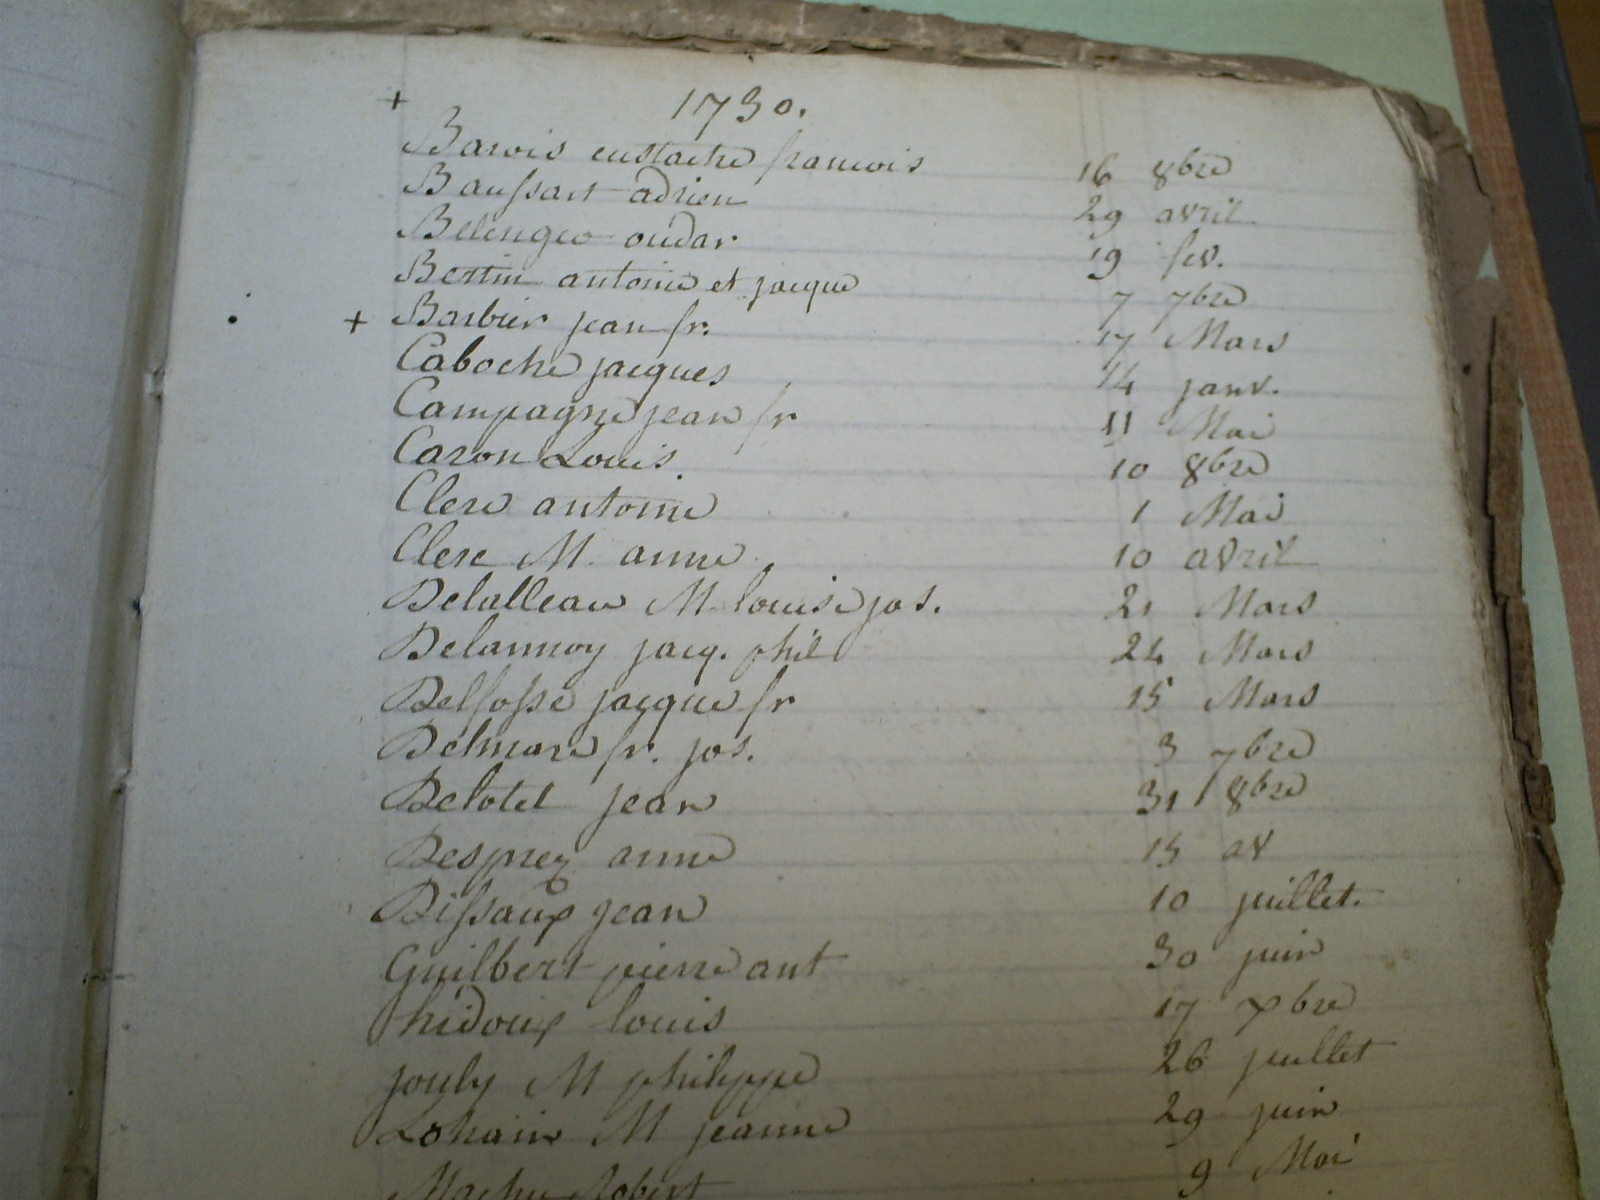 + 1730.
Barois eustache francois 16 8bre
Baussart adrien 29 avril
Belenger oudar 19 fev.
Bertin antoine et jacque 7 7bre
+ Barbier jean fr. 17 Mars
Caboche jacques 14 janv.
Campagne jean fr 11 Mai
Caron Louis 10 8bre
Clere antoine 1 Mai
Clere M. anne 10 avril
Delalleau M louise jos. 21 Mars
Delannoy jacq. phil 24 Mars
Delfosse jacque fr 15 Mars
Delmare fr. jos. 3 7bre
Delotel jean 31 8bre
Desprez anne 15 av
Dissaux jean 10 juillet.
Guilbert pierre ant 30 juin
hidoux louis 17 xbre
joyly M philippe 26 juillet
Lohain M jeanne 29 juin
Machu Robert 9 Mai